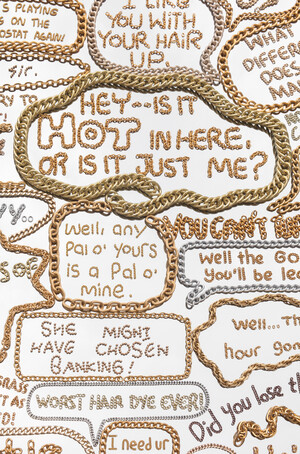 S PLAYING
S ON THE
OSTAT AGAIN!
I LIKE
YOU WITH
YOUR HAIR
UP.
WHAT
DIFFERE
DOES
MA
Sir.
RY TO
HEY--IS IT
HOT IN HERE,
OR IS IT JUST ME?
YOU CAN'T
Well, any
Pal o' yours
is a Pal o'
mine.
Well the Go
you'll be le
SHE MIGHT
HAVE CHOSEN
BANKING!
Well...Th
hour gon
GRASS
T AS
D!
WORST HAIR DYE EVER!
Did you lose th
I need ur